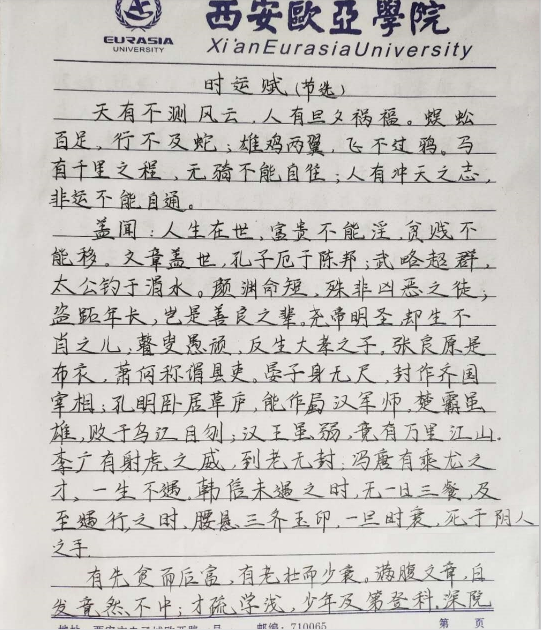 EURASIA
UNIVERSITY
西安歐亞學院
Xi'anEurasiaUniversity
时运赋(节选)
天有不测风云，人有旦夕祸福。蜈蚣
百足，行不及蛇；雄鸡两翼，飞不过鸦。马
有千里之程，无骑不能自往；人有冲天之志，
非运不能自通。
盖闻：人生在世，富贵不能淫，贫贱不
能移。文章盖世，孔子厄于陈邦；武略超群，
太公钓于渭水。颜渊命短，殊非凶恶之徒；
盗跖年长，岂是善良之辈。尧帝明圣，却生不
肖之儿，瞽叟愚顽，反生大孝之子。张良原是
布衣，萧何称谓县吏。晏子身无尺，封作齐国
宰相；孔明卧居草庐，能作蜀汉军师，楚霸虽
雄，败于乌江自刎；汉王虽弱，竟有万里江山。
李广有射虎之威，到老无封；冯唐有乘龙之
才，一生不遇，韩信未遇之时，无一日三餐，及
至遇行之时，腰悬三齐玉印，一旦时衰，死于阴人
之手.
有先贫而后富，有老壮而少衰。满腹文章，白
发竟然不中；才疏学浅，少年及第登科，深院
邮编：710065
第 页